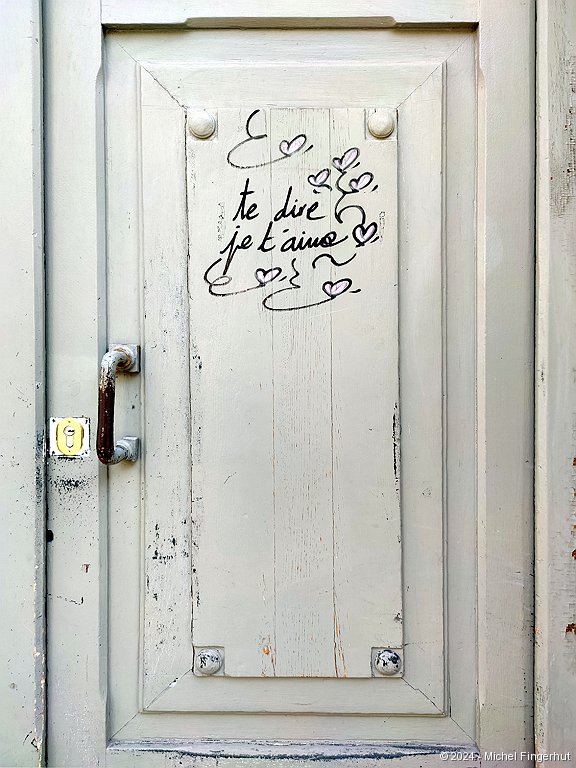 te dire
je t'aime
©2024 - Michel Fingerhut